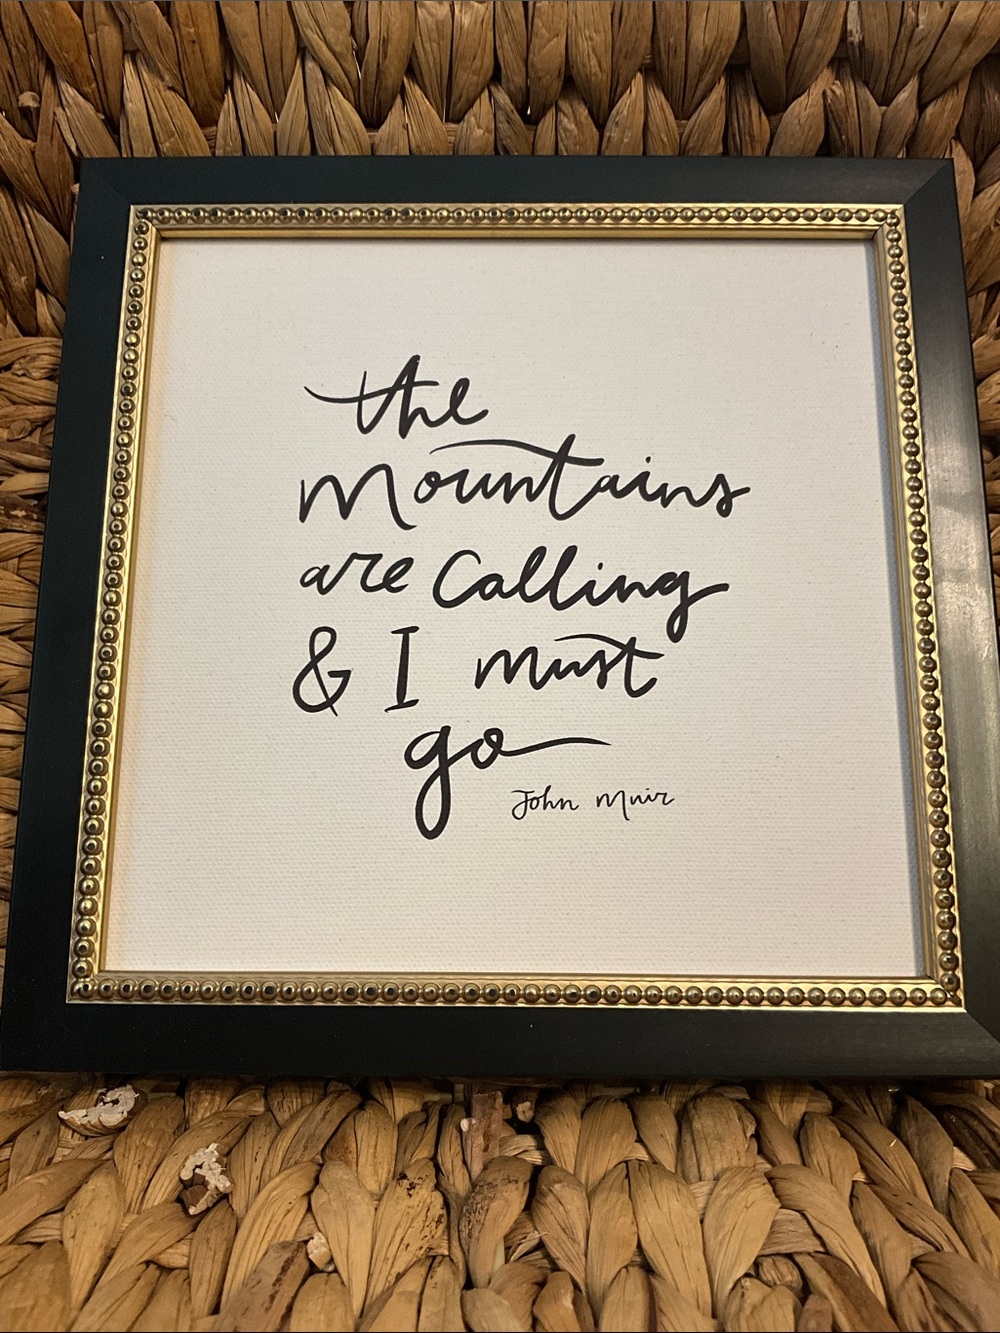 the
Mountains
are Calling
& I must
go
John Muir